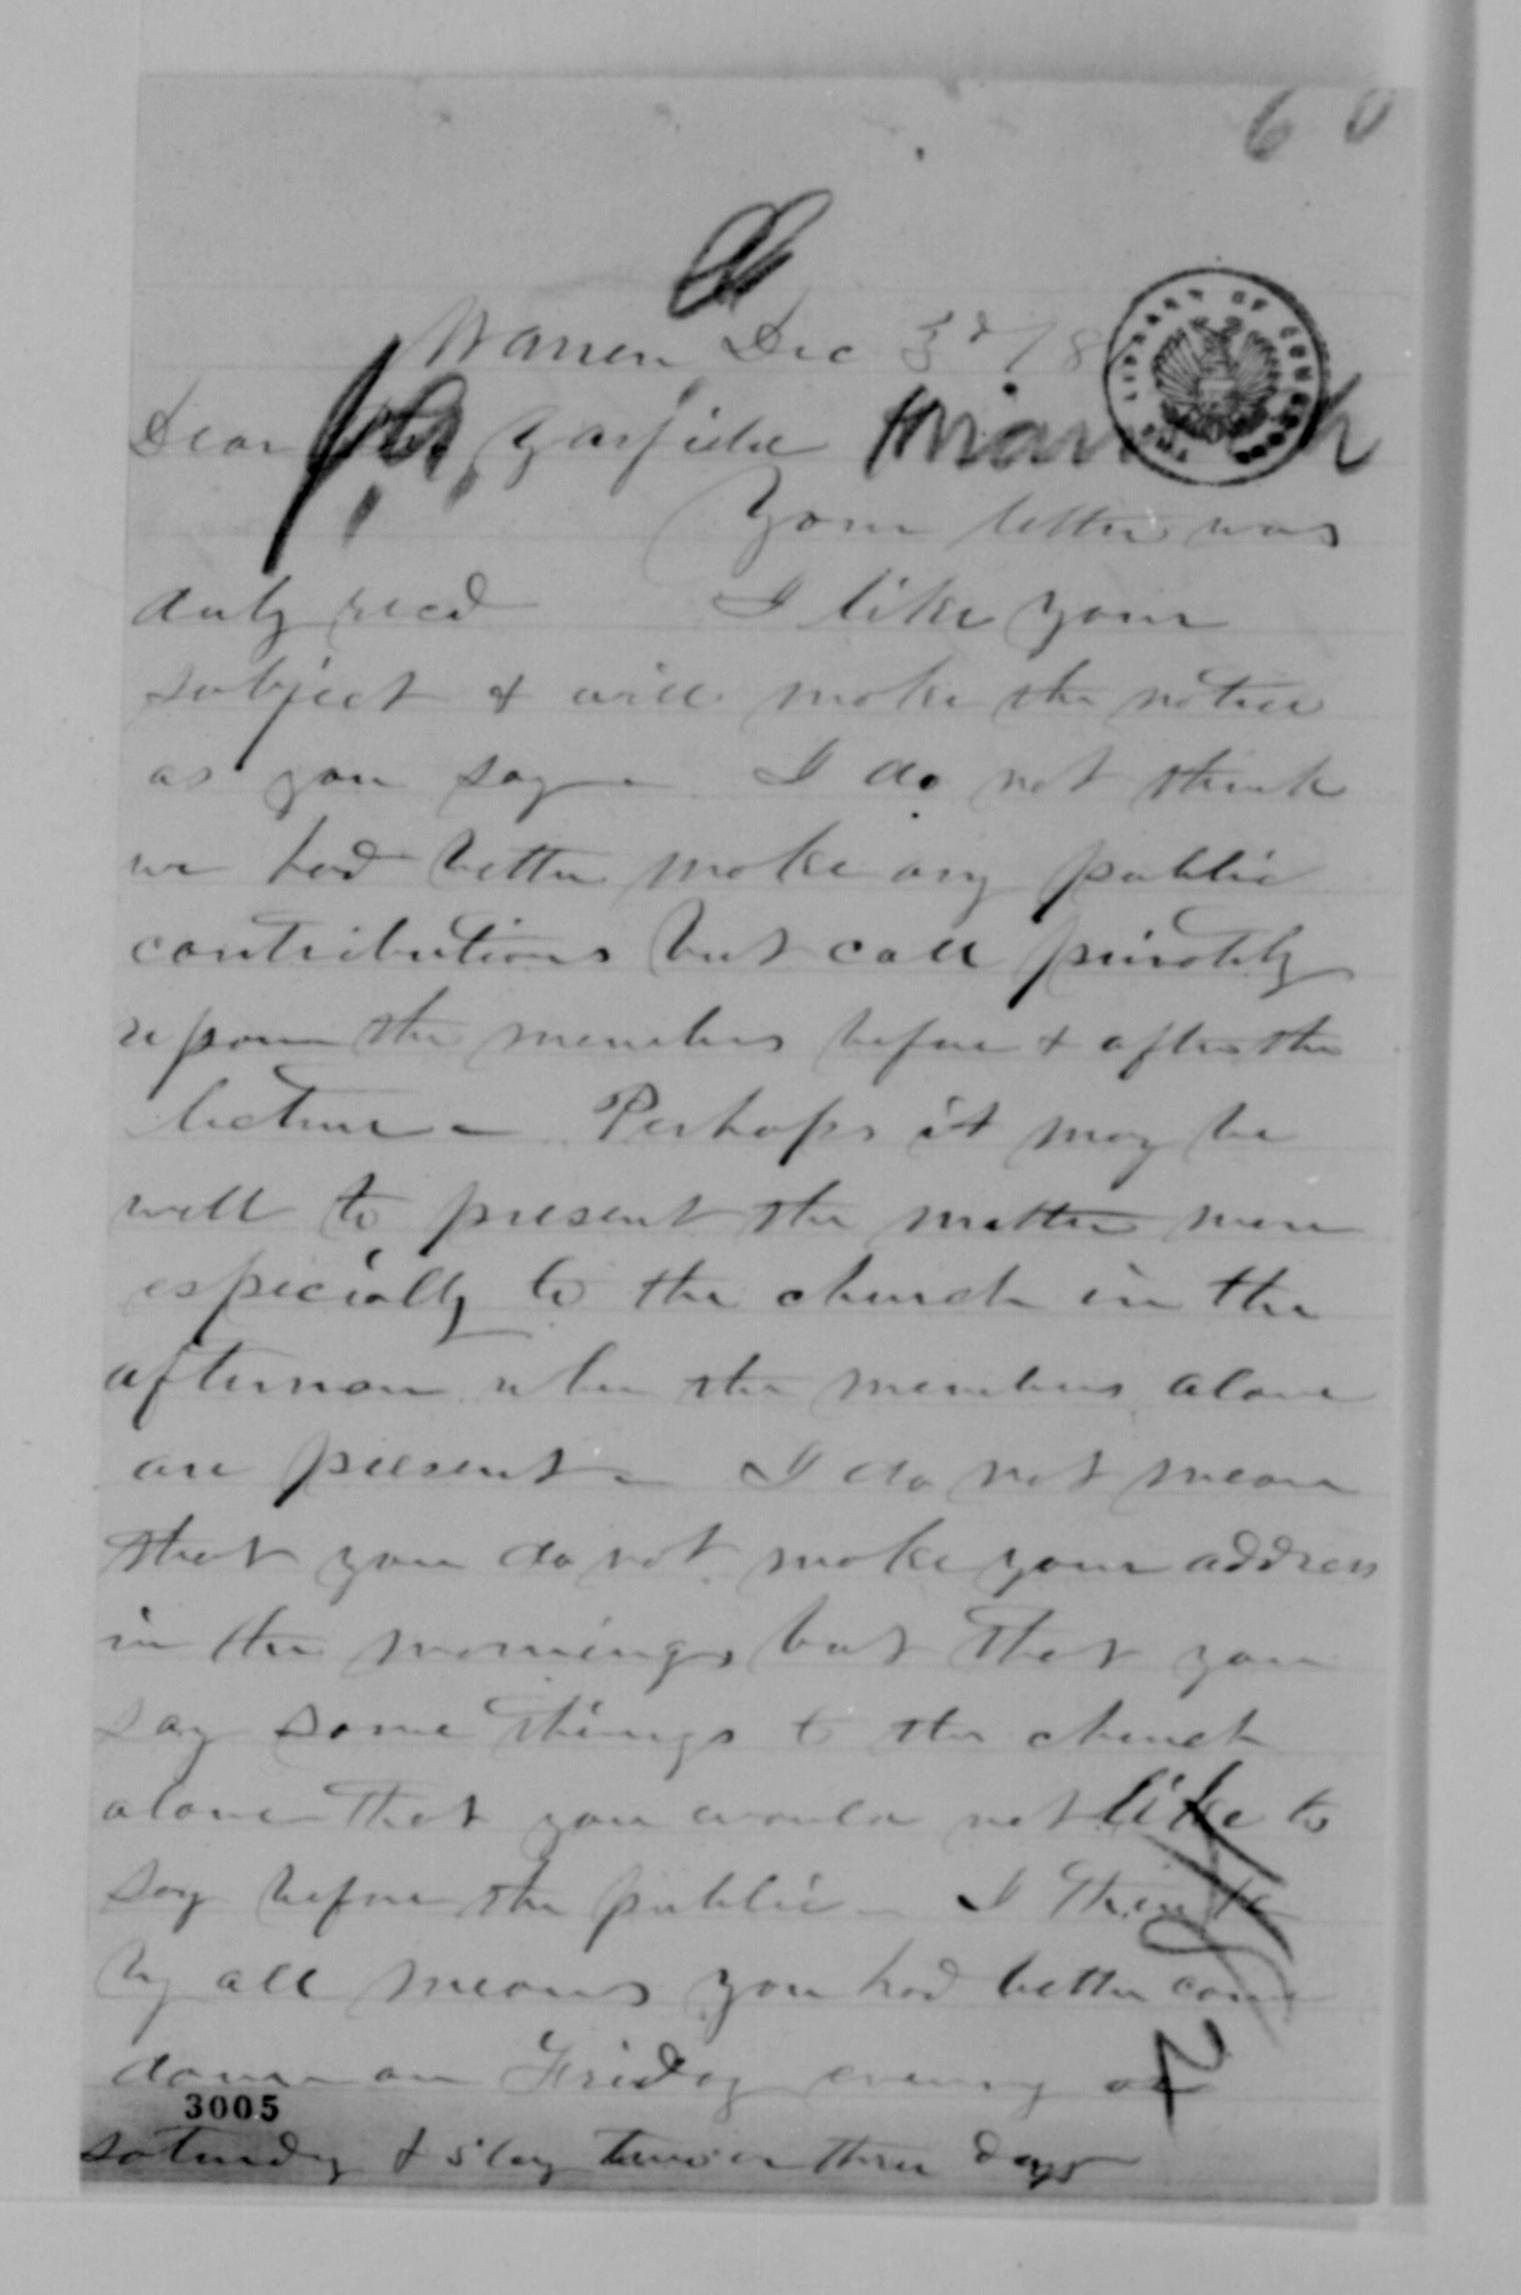 60
Warren Dec 3d /8
Dear Garfield
Your letter was
duly recd I like your
subject & will make the notice
as you say - I do not think
we had better make any public
contributions but call privately
upon the members before & after the
lecture - Perhaps it may be
well to present the matter more
especially to the church in the
afternoon when the members alone
are present - I do not mean
that you do not make your address
in the morning, but that you
say some things to the church
alone that you would not like to
say before the public - I think
by all means you had better come
down on Friday evening or
3005
saturday & stay two or three days
THE LIBRARY OF CONGRESS